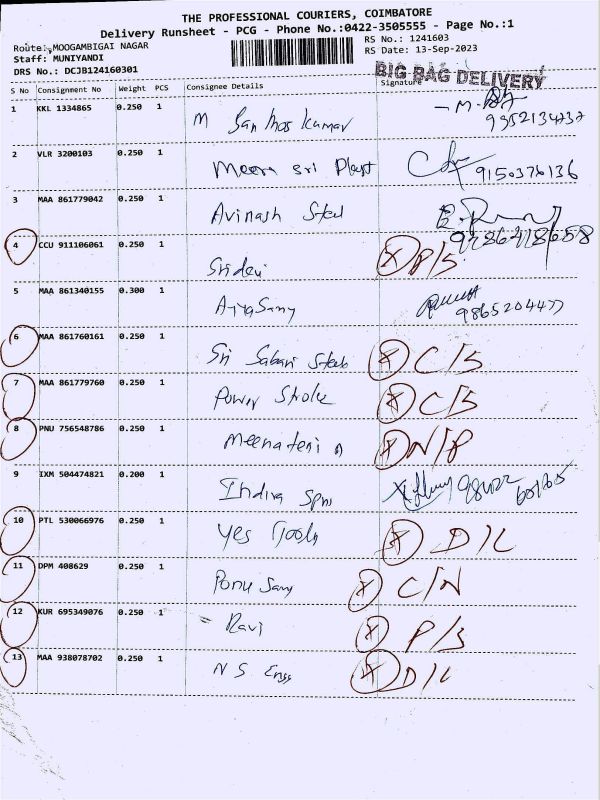 THE PROFESSIONAL COURIERS, COIMBATORE
Delivery Runsheet - PCG - Phone No.:0422-3505555 - Page No.:1
Route: MOOGAMBIGAI NAGAR
RS No.: 1241603
Staff: MUNIYANDI
RS Date: 13-Sep-2023
DRS No.: DCJB124160301
BIG BAG DELIVERY
S No Consignment No Weight PCS Consignee Details Signature
1 KKL 1334865 0.250 1 M San hos kumar - M.
9952134737
2 VLR 3200103 0.250 1 Meera sri Plast 9150376136
3 MAA 861779042 0.250 1 Avinash Steel
9786418658
4 CCU 911106061 0.250 1 Sridevi X P/S
5 MAA 861340155 0.300 1 AiyaSamy 9865204477
6 MAA 861760161 0.250 1 Sri Sabari Steels X C/S
7 MAA 861779760 0.250 1 Power Stroke X C/S
8 PNU 756548786 0.250 1 X N/P
9 IXM 504474821 0.200 1 Indira Spns
10 PTL 530066976 0.250 1 Yes Tools X D/L
11 DPM 408629 0.250 1 Ponu Samy X C/N
12 KUR 695349076 0.250 1 Ravi X P/S
13 MAA 938078702 0.250 1 N S Enggs X D/L